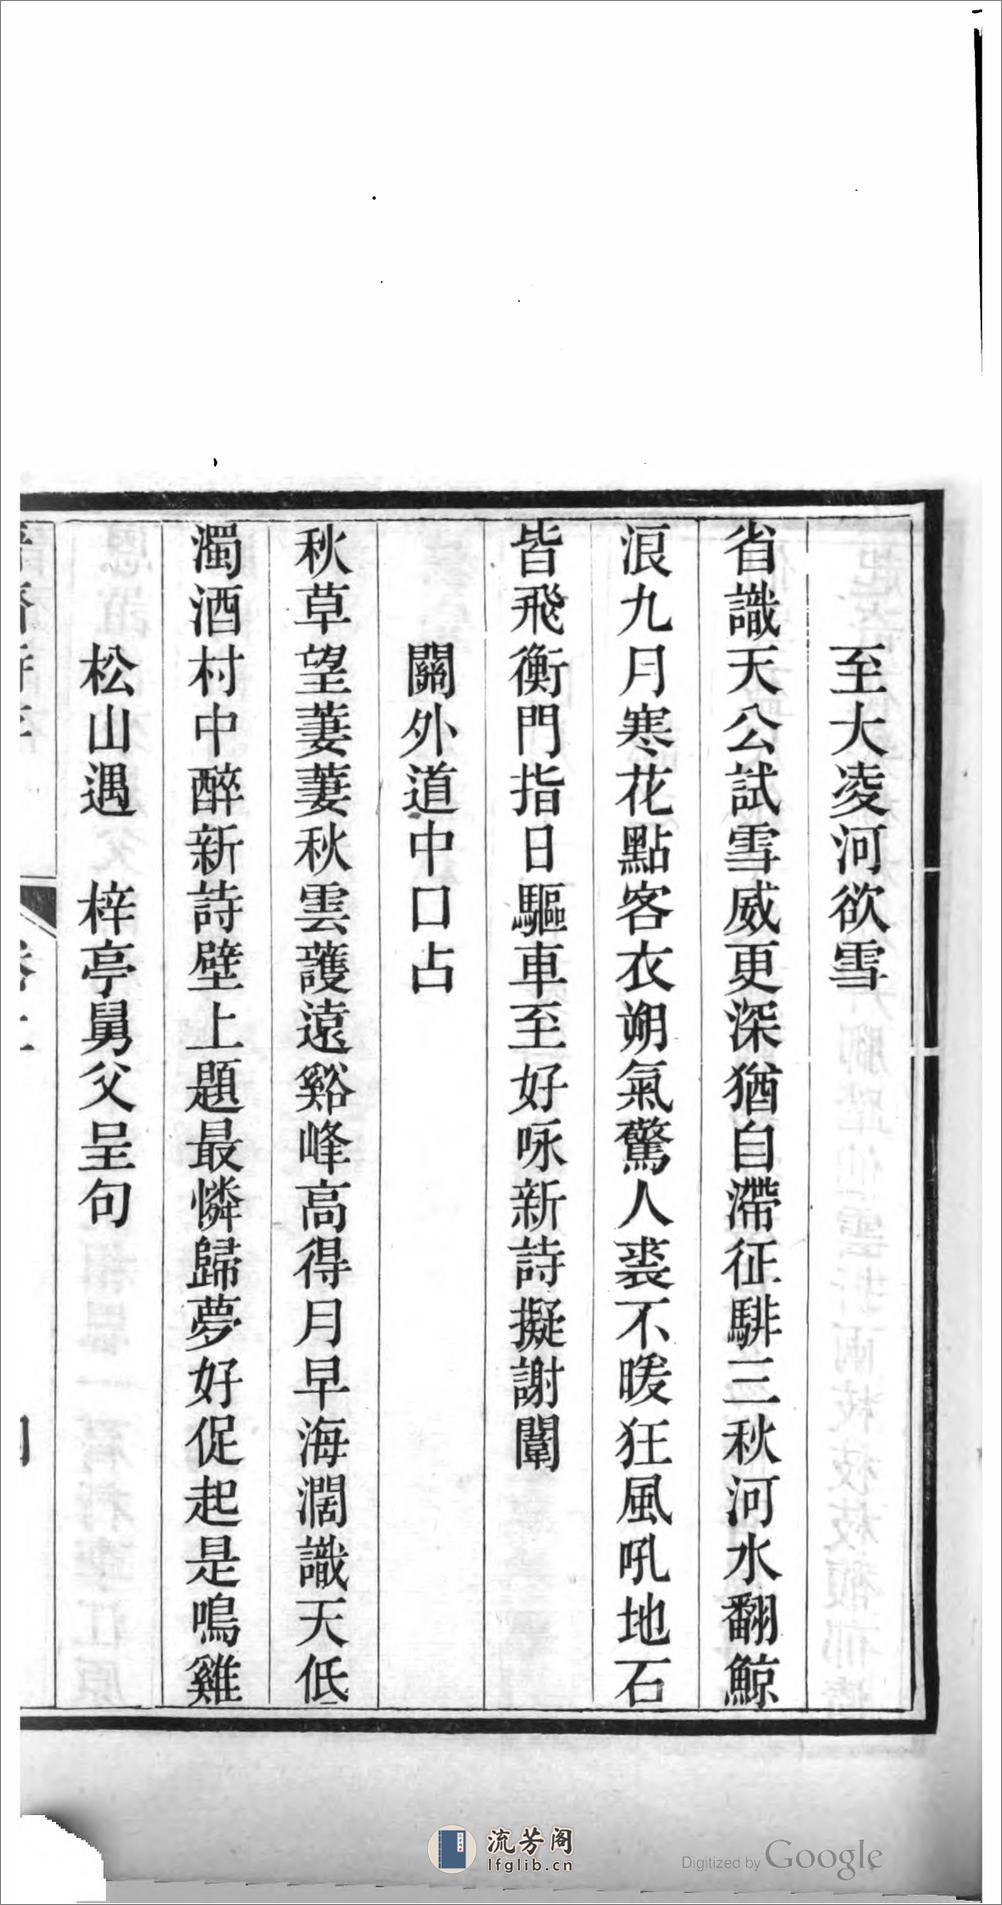 至大凌河欲雪
省識天公試雪威更深猶自滯征騑三秋河水翻鯨
浪九月寒花點客衣朔氣驚人裘不暖狂風吼地石
皆飛衡門指日驅車至好咏新詩擬謝闈
關外道中口占
秋草望萋萋秋雲護遠谿峰高得月早海濶識天低
濁酒村中醉新詩壁上題最憐歸夢好促起是鳴雞
松山遇 梓亭舅父呈句
流芳阁
lfglib.cn
Digitized by Google